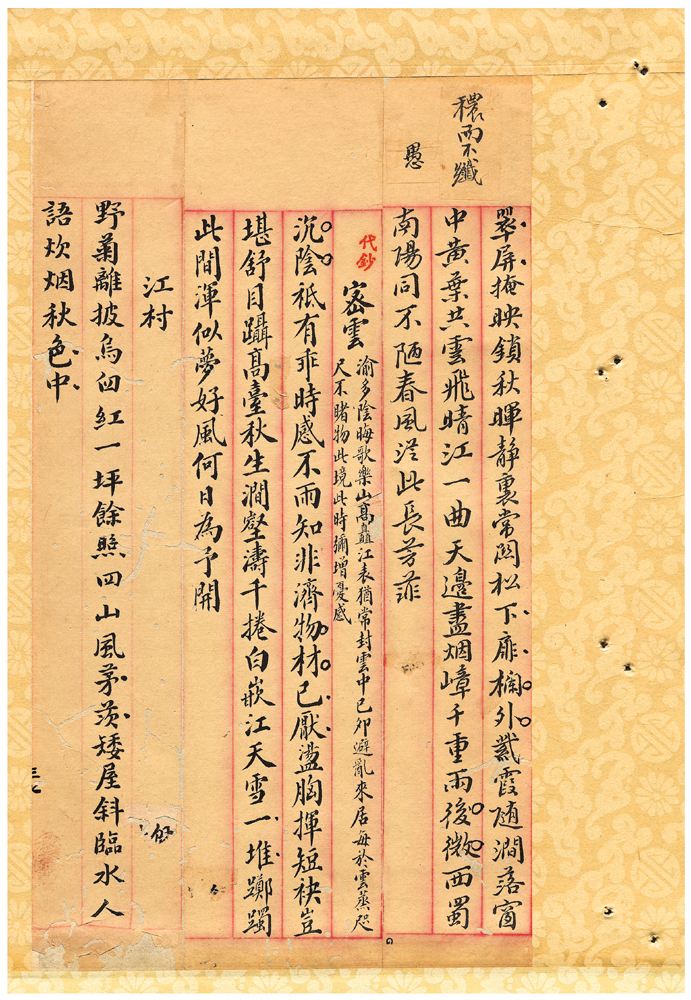 穠而不纖
愚
翠屏掩映鎖秋暉靜裏常関松下扉檻外紫霞随澗落窗
中黃葉共雲飛晴江一曲天邊盡烟嶂千重雨後微西蜀
南陽同不陋春風從此長芳菲
代鈔
密雲
渝多陰晦歌樂山高矗江表猶常封雲中己卯避亂來居每於雲蒸咫
尺不睹物此境此時彌增憂感
沉陰祇有乖時感不雨知非濟物材已厭盪胸揮短袂豈
堪舒目躡高臺秋生澗壑濤千捲白嵌江天雪一堆躑躅
此間渾似夢好風何日為予開
江村
野菊離披烏桕紅一坪餘照四山風茅茨矮屋斜臨水人
語炊烟秋色中